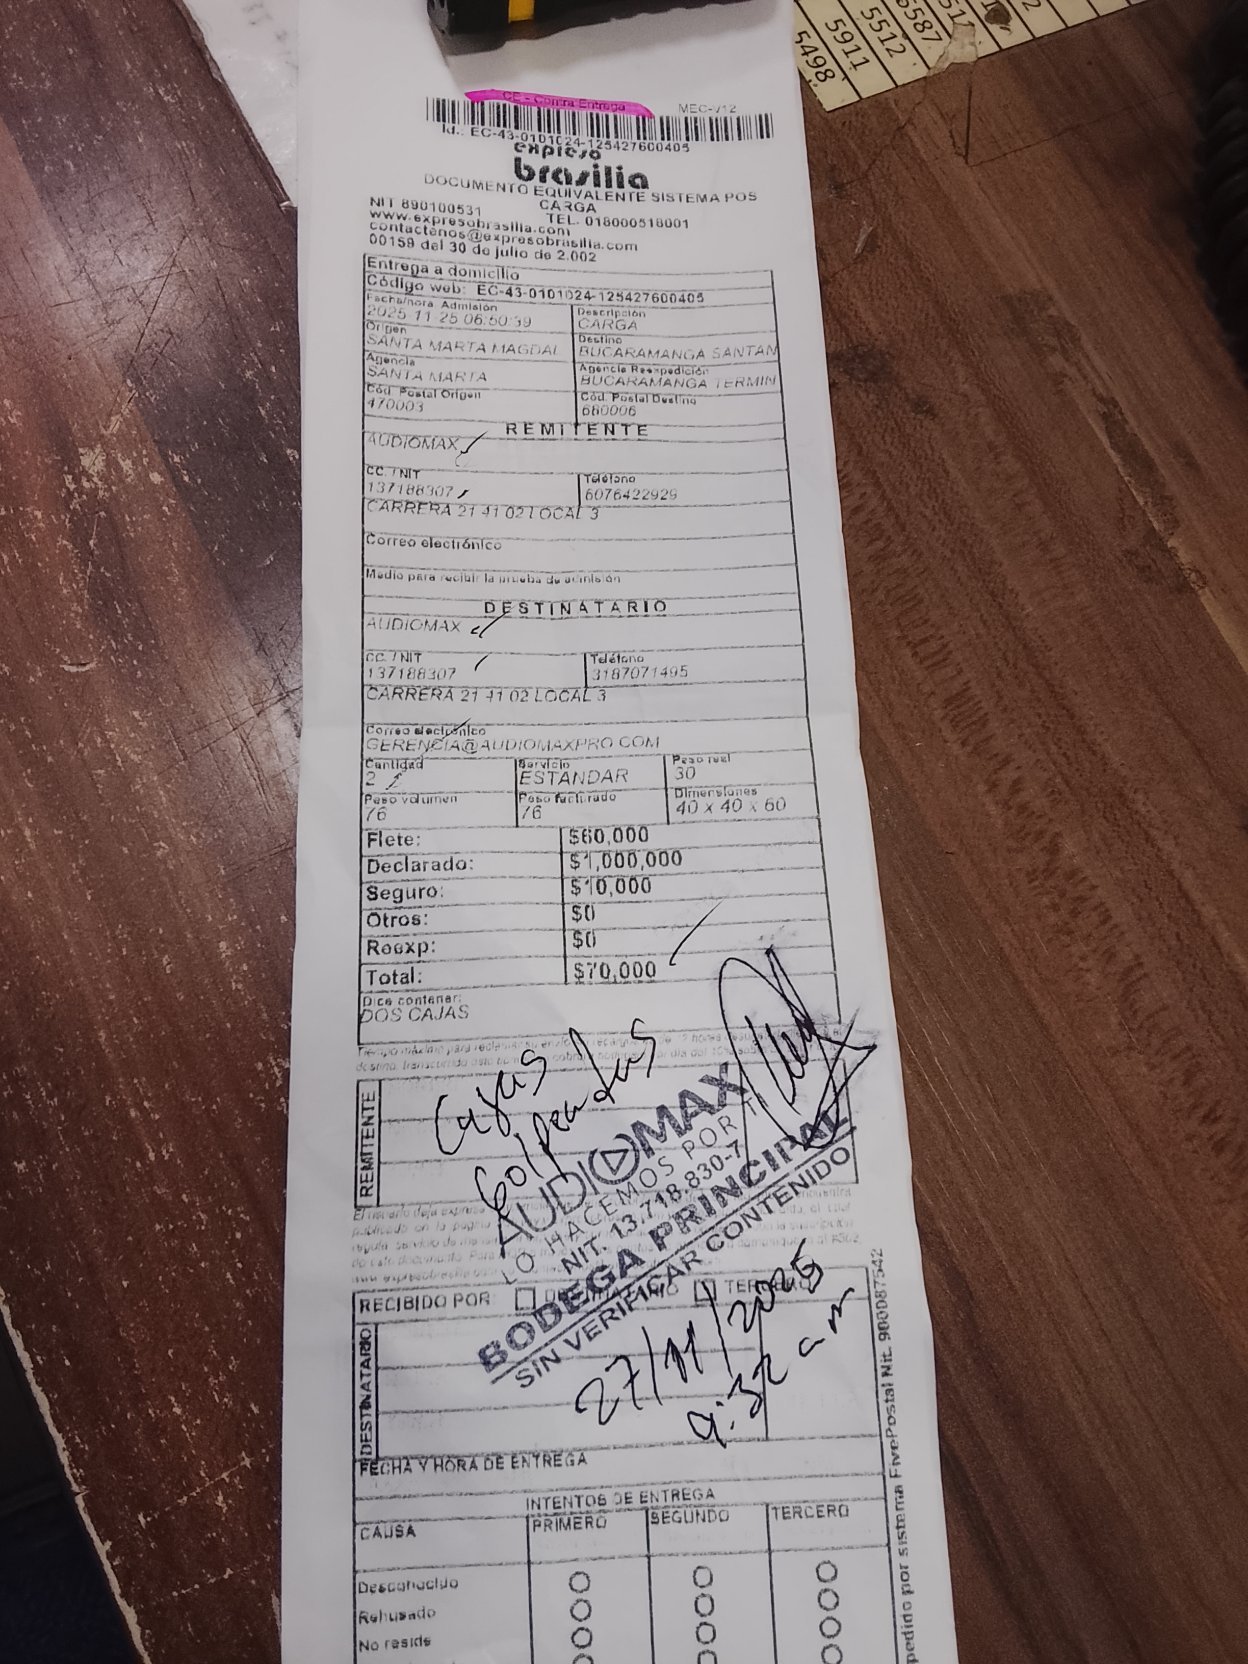 5498
5911
5512
CE - Contra Entrega
MEC-V12
Id.: EC-43-0101024-125427600405
expreso
brasilia
DOCUMENTO EQUIVALENTE SISTEMA POS
CARGA
NIT 890100531 TEL. 018000518001
www.expresobrasilia.com
contactenos@expresobrasilia.com
00159 del 30 de julio de 2.002
Entrega a domicilio
Código web: EC-43-0101024-125427600405
Fecha/hora Admisión Descripción
2025-11-25 06:50:39 CARGA
Origen Destino
SANTA MARTA MAGDAL BUCARAMANGA SANTAN
Agencia Agencia Reexpedición
SANTA MARTA BUCARAMANGA TERMIN
Cód. Postal Origen Cód. Postal Destino
470003 680006
REMITENTE
AUDIOMAX
CC. / NIT Teléfono
137188307 6076422929
CARRERA 21 41 02 LOCAL 3
Correo electrónico
Medio para recibir la prueba de admisión
DESTINATARIO
AUDIOMAX
CC. / NIT Teléfono
137188307 3187071495
CARRERA 21 41 02 LOCAL 3
Correo electrónico
GERENCIA@AUDIOMAXPRO.COM
Cantidad Servicio Peso real
2 ESTANDAR 30
Peso volumen Peso facturado Dimensiones
76 76 40 x 40 x 60
Flete: $60,000
Declarado: $1,000,000
Seguro: $10,000
Otros: $0
Reexp: $0
Total: $70,000
Dice contener:
DOS CAJAS
REMITENTE
Cajas
Golpeadas
AUDIOMAX
LO HACEMOS POR TI
NIT. 13.718.830-7
BODEGA PRINCIPAL
SIN VERIFICAR CONTENIDO
RECIBIDO POR
DESTINATARIO
27/11/2025
9:32 am
FECHA Y HORA DE ENTREGA
INTENTOS DE ENTREGA
CAUSA PRIMERO SEGUNDO TERCERO
Desconocido
Rehusado
No reside
pedido por sistema FivePostal Nit. 900087542